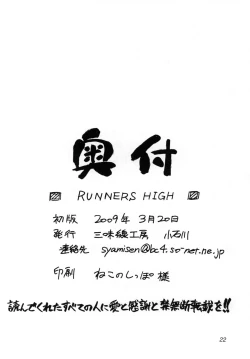 奥付
RUNNERS HIGH
初版 2009年 3月20日
発行 三味線工房 小石川
連絡先 syamisen@bc4.so-net.ne.jp
印刷 ねこのしっぽ様
読んでくれたすべての人に愛と感謝と禁無断転載を!!
22